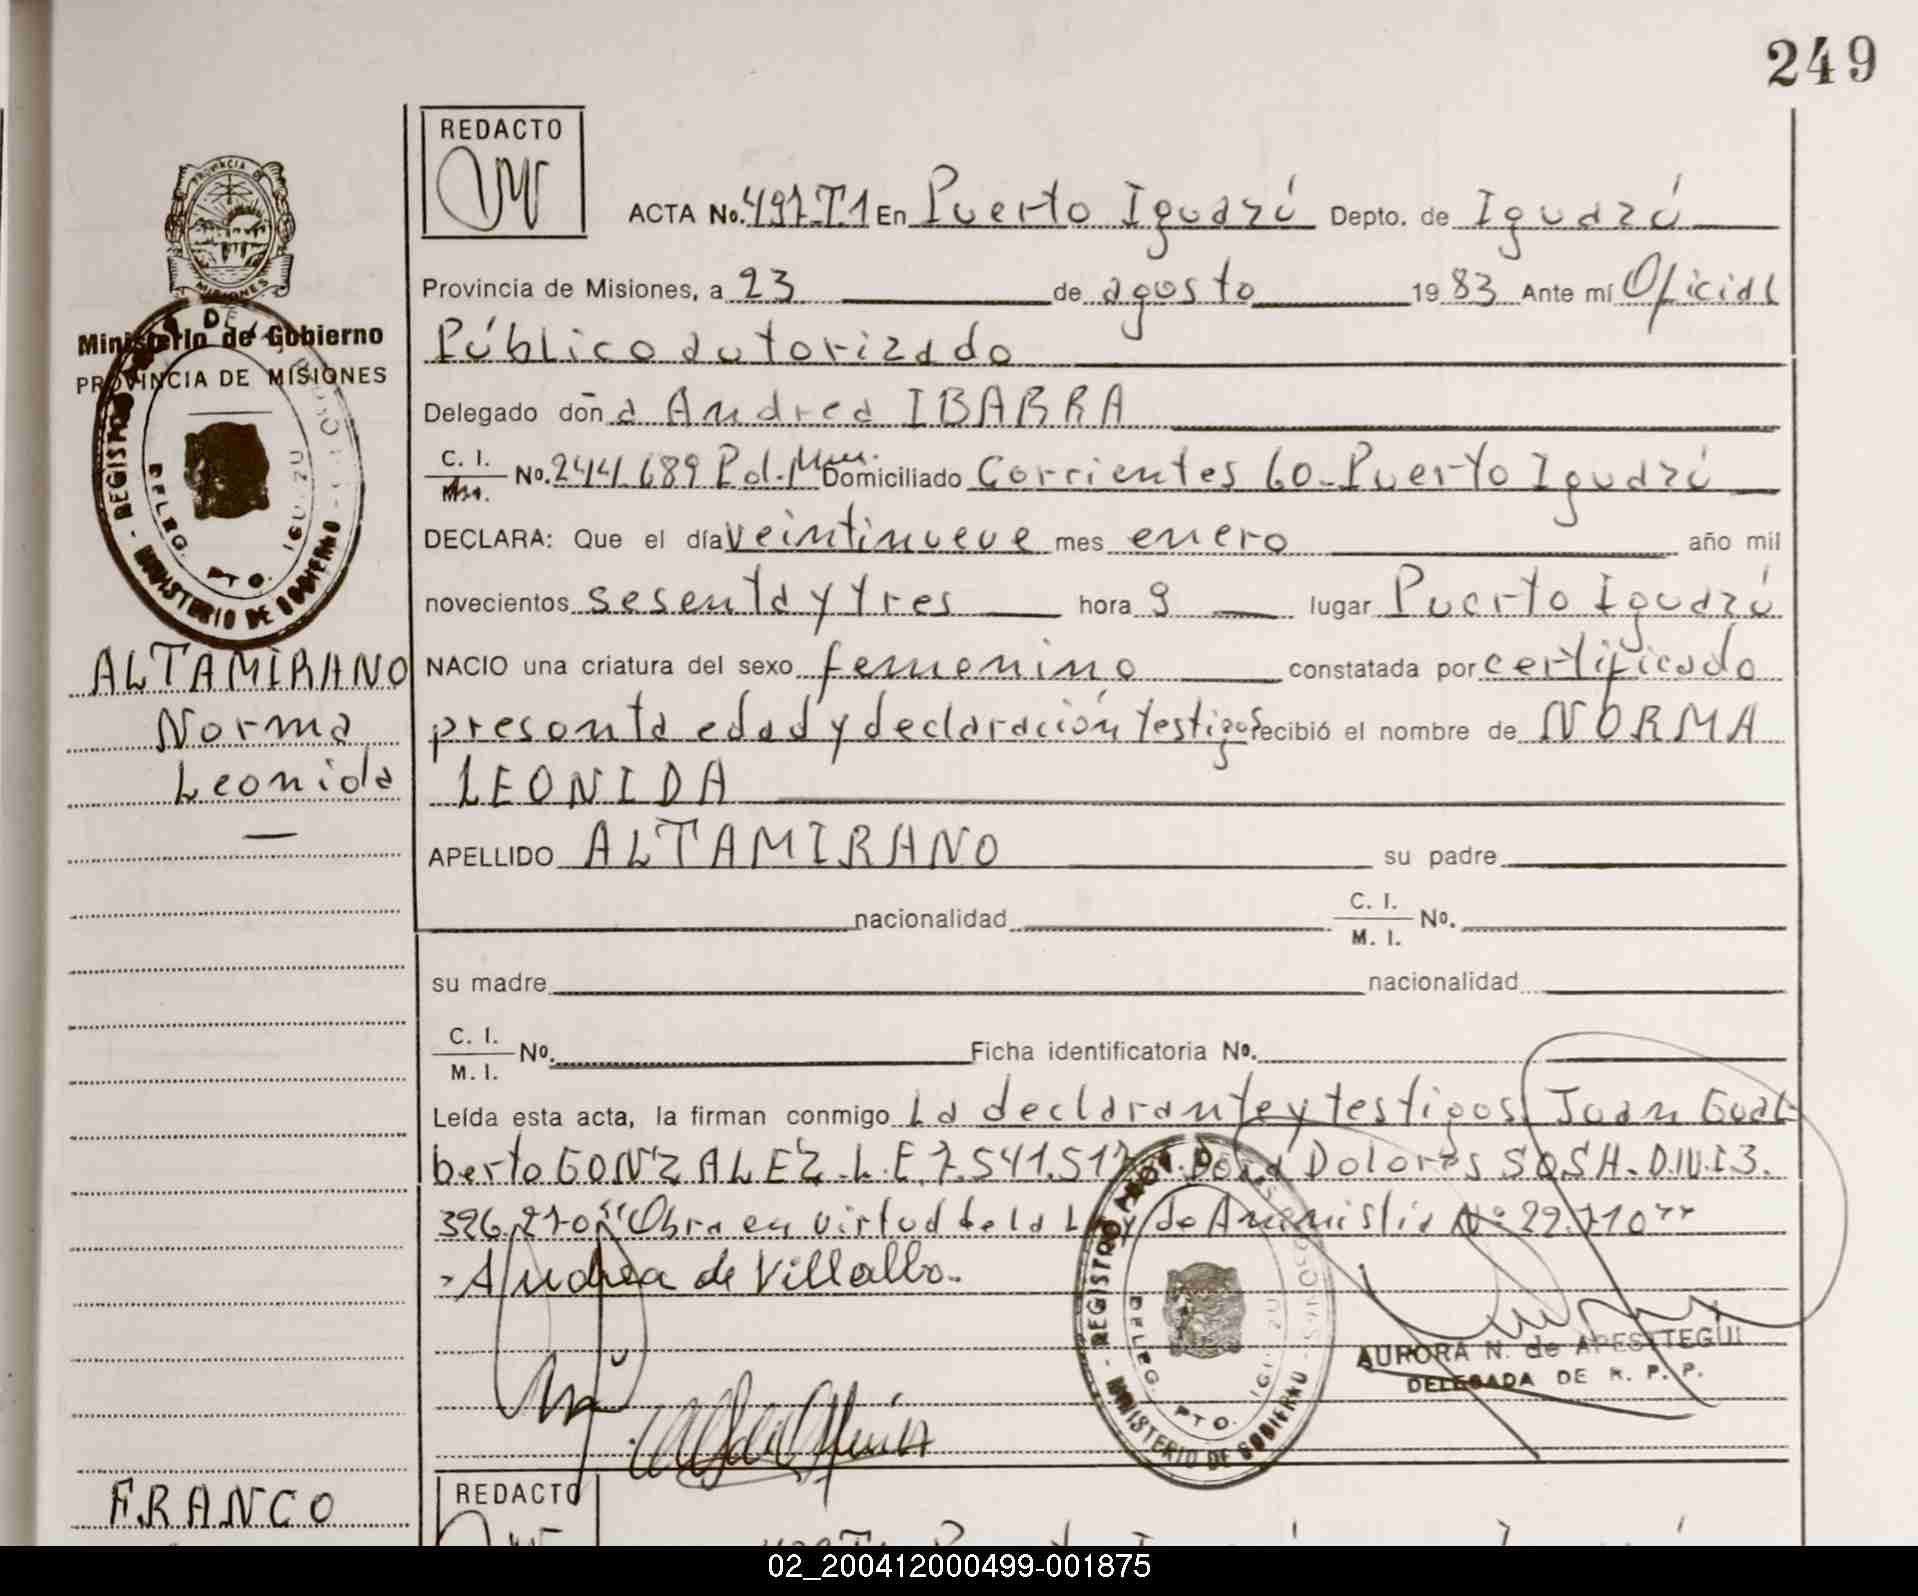 249
REDACTO
ACTA No. 497-T1 En Puerto Iguazú Depto. de Iguazú
Provincia de Misiones, a 23 de agosto 1983 Ante mí Oficial
Público autorizado
Ministerio de Gobierno
PROVINCIA DE MISIONES
Delegado don a Andrea IBARRA
C. I. No. 244.689 Pol. Domiciliado Corrientes 60-Puerto Iguazú
DECLARA: Que el día veintinueve mes enero año mil
novecientos sesenta y tres hora 9 lugar Puerto Iguazú
ALTAMIRANO
Norma
Leonida
NACIO una criatura del sexo femenino constatada por certificado
presonta edad y declaración testigos recibió el nombre de NORMA
LEONIDA
APELLIDO ALTAMIRANO su padre
nacionalidad C. I. M. I. No.
su madre nacionalidad
C. I. M. I. No. Ficha identificatoria No.
Leída esta acta, la firman conmigo La declarante y testigos Juan Gual
berto GONZALEZ-L.E.7.541.517 Dolores SOSA-D.N.I 3.
326.270 "Obra en virtud de la Ley de Amnistía Nº 22.710"
Andrea de Villalba.
REGISTRO
DELEG. PTO. IGUAZU
MINISTERIO DE GOBIERNO
AURORA N. de APESTTEGUI
DELEGADA DE R. P. P.
FRANCO
REDACTO
02_200412000499-001875